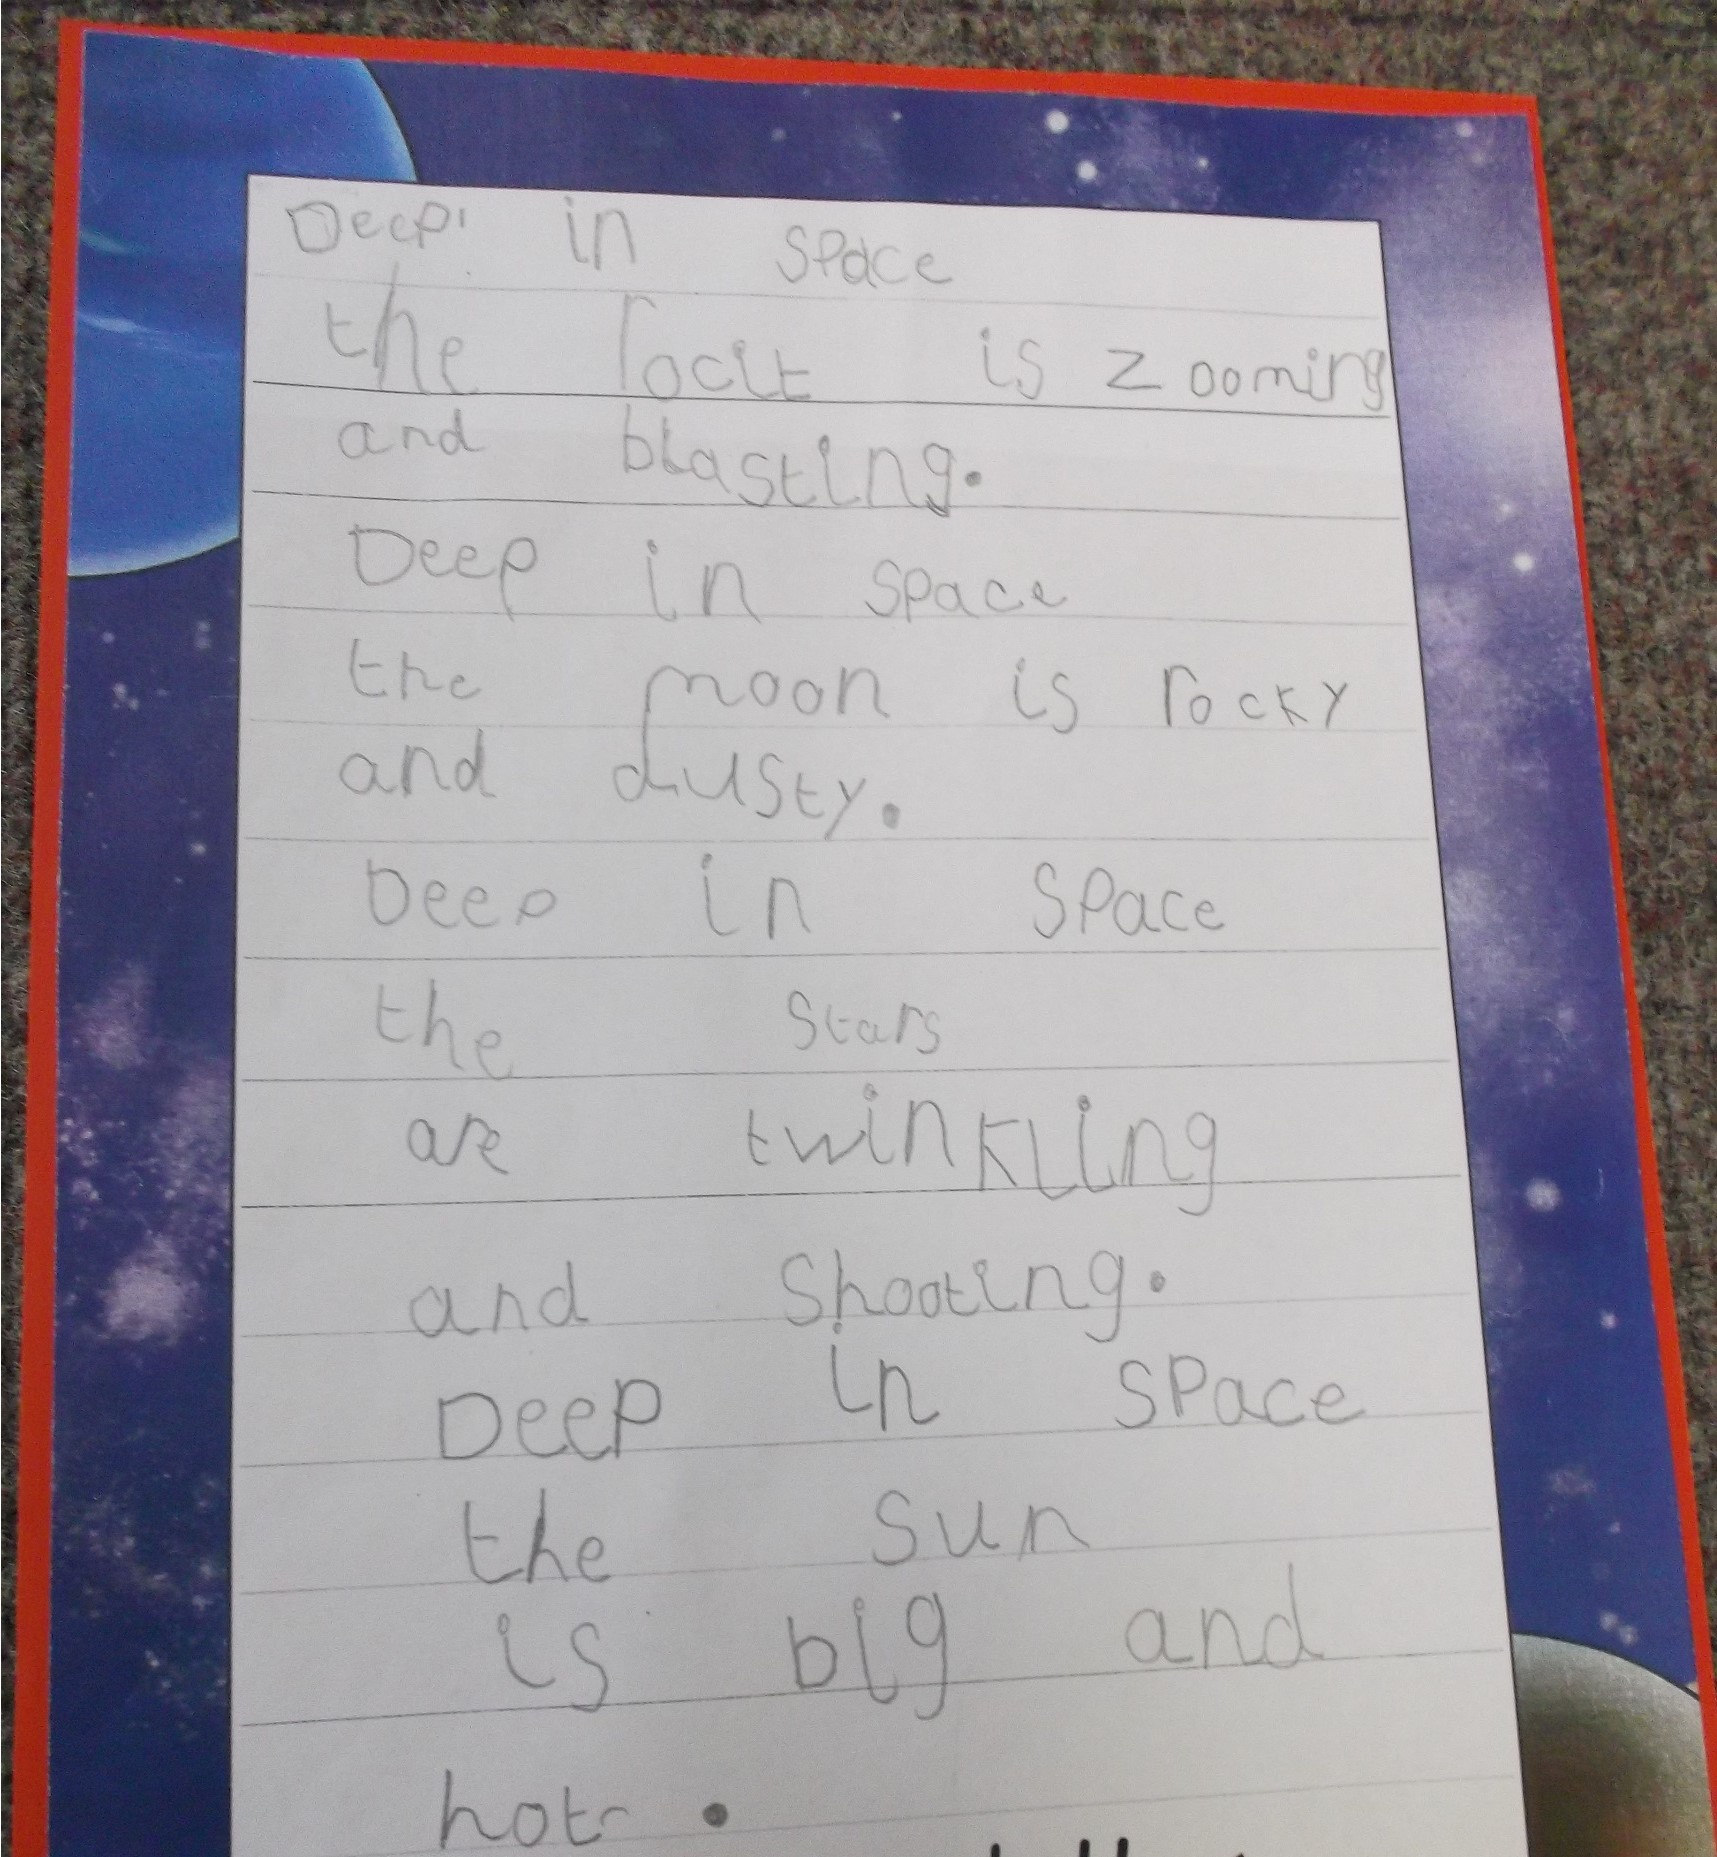 Deep in space
the rocit is zooming
and blasting.
Deep in space
the moon is rocky
and dusty.
Deep in space
the stars
are twinkling
and shooting.
Deep in space
the sun
is big and
hot.